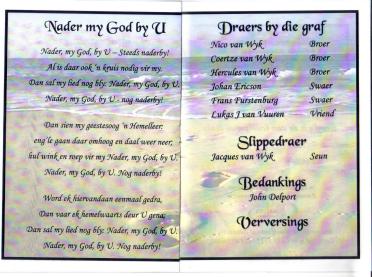 Nader my God by U
Nader, my God, by U – Steeds naderby!
Al is daar ook 'n kruis nodig vir my.
Dan sal my lied nog bly: Nader, my God, by U.
Nader, my God, by U - nog naderby!
Dan sien my geestesoog 'n Hemelleer:
eng'le gaan daar omhoog en daal weer neer;
hul wink en roep vir my Nader, my God, by U.
Nader, my God, by U. Nog naderby!
Word ek hiervandaan eenmaal gedra,
Dan vaar ek hemelwaarts deur U gena;
Dan sal my lied nog bly: Nader, my God, by U.
Nader, my God, by U. Nog naderby!
Draers by die graf
Nico van Wyk Broer
Coertze van Wyk Broer
Hercules van Wyk Broer
Johan Ericson Swaer
Frans Furstenburg Swaer
Lukas J van Vuuren Vriend
Slippedraer
Jacques van Wyk Seun
Bedankings
John Delport
Verversings